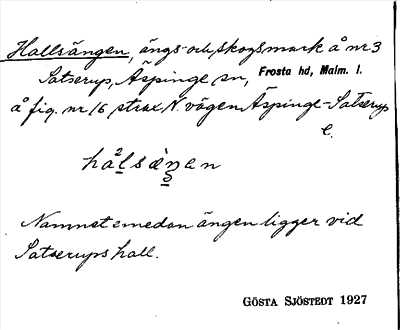 Hallsängen, ängs- och skogsmark å nr 3
Satserup, Äspinge sn, Frosta hd, Malm. l.
å fig. nr 16 strax N. vägen Äspinge-Satserup
ha²lsæ̀ŋen
Namnet emedan ängen ligger vid
Satserups hall.
GÖSTA SJÖSTEDT 1927